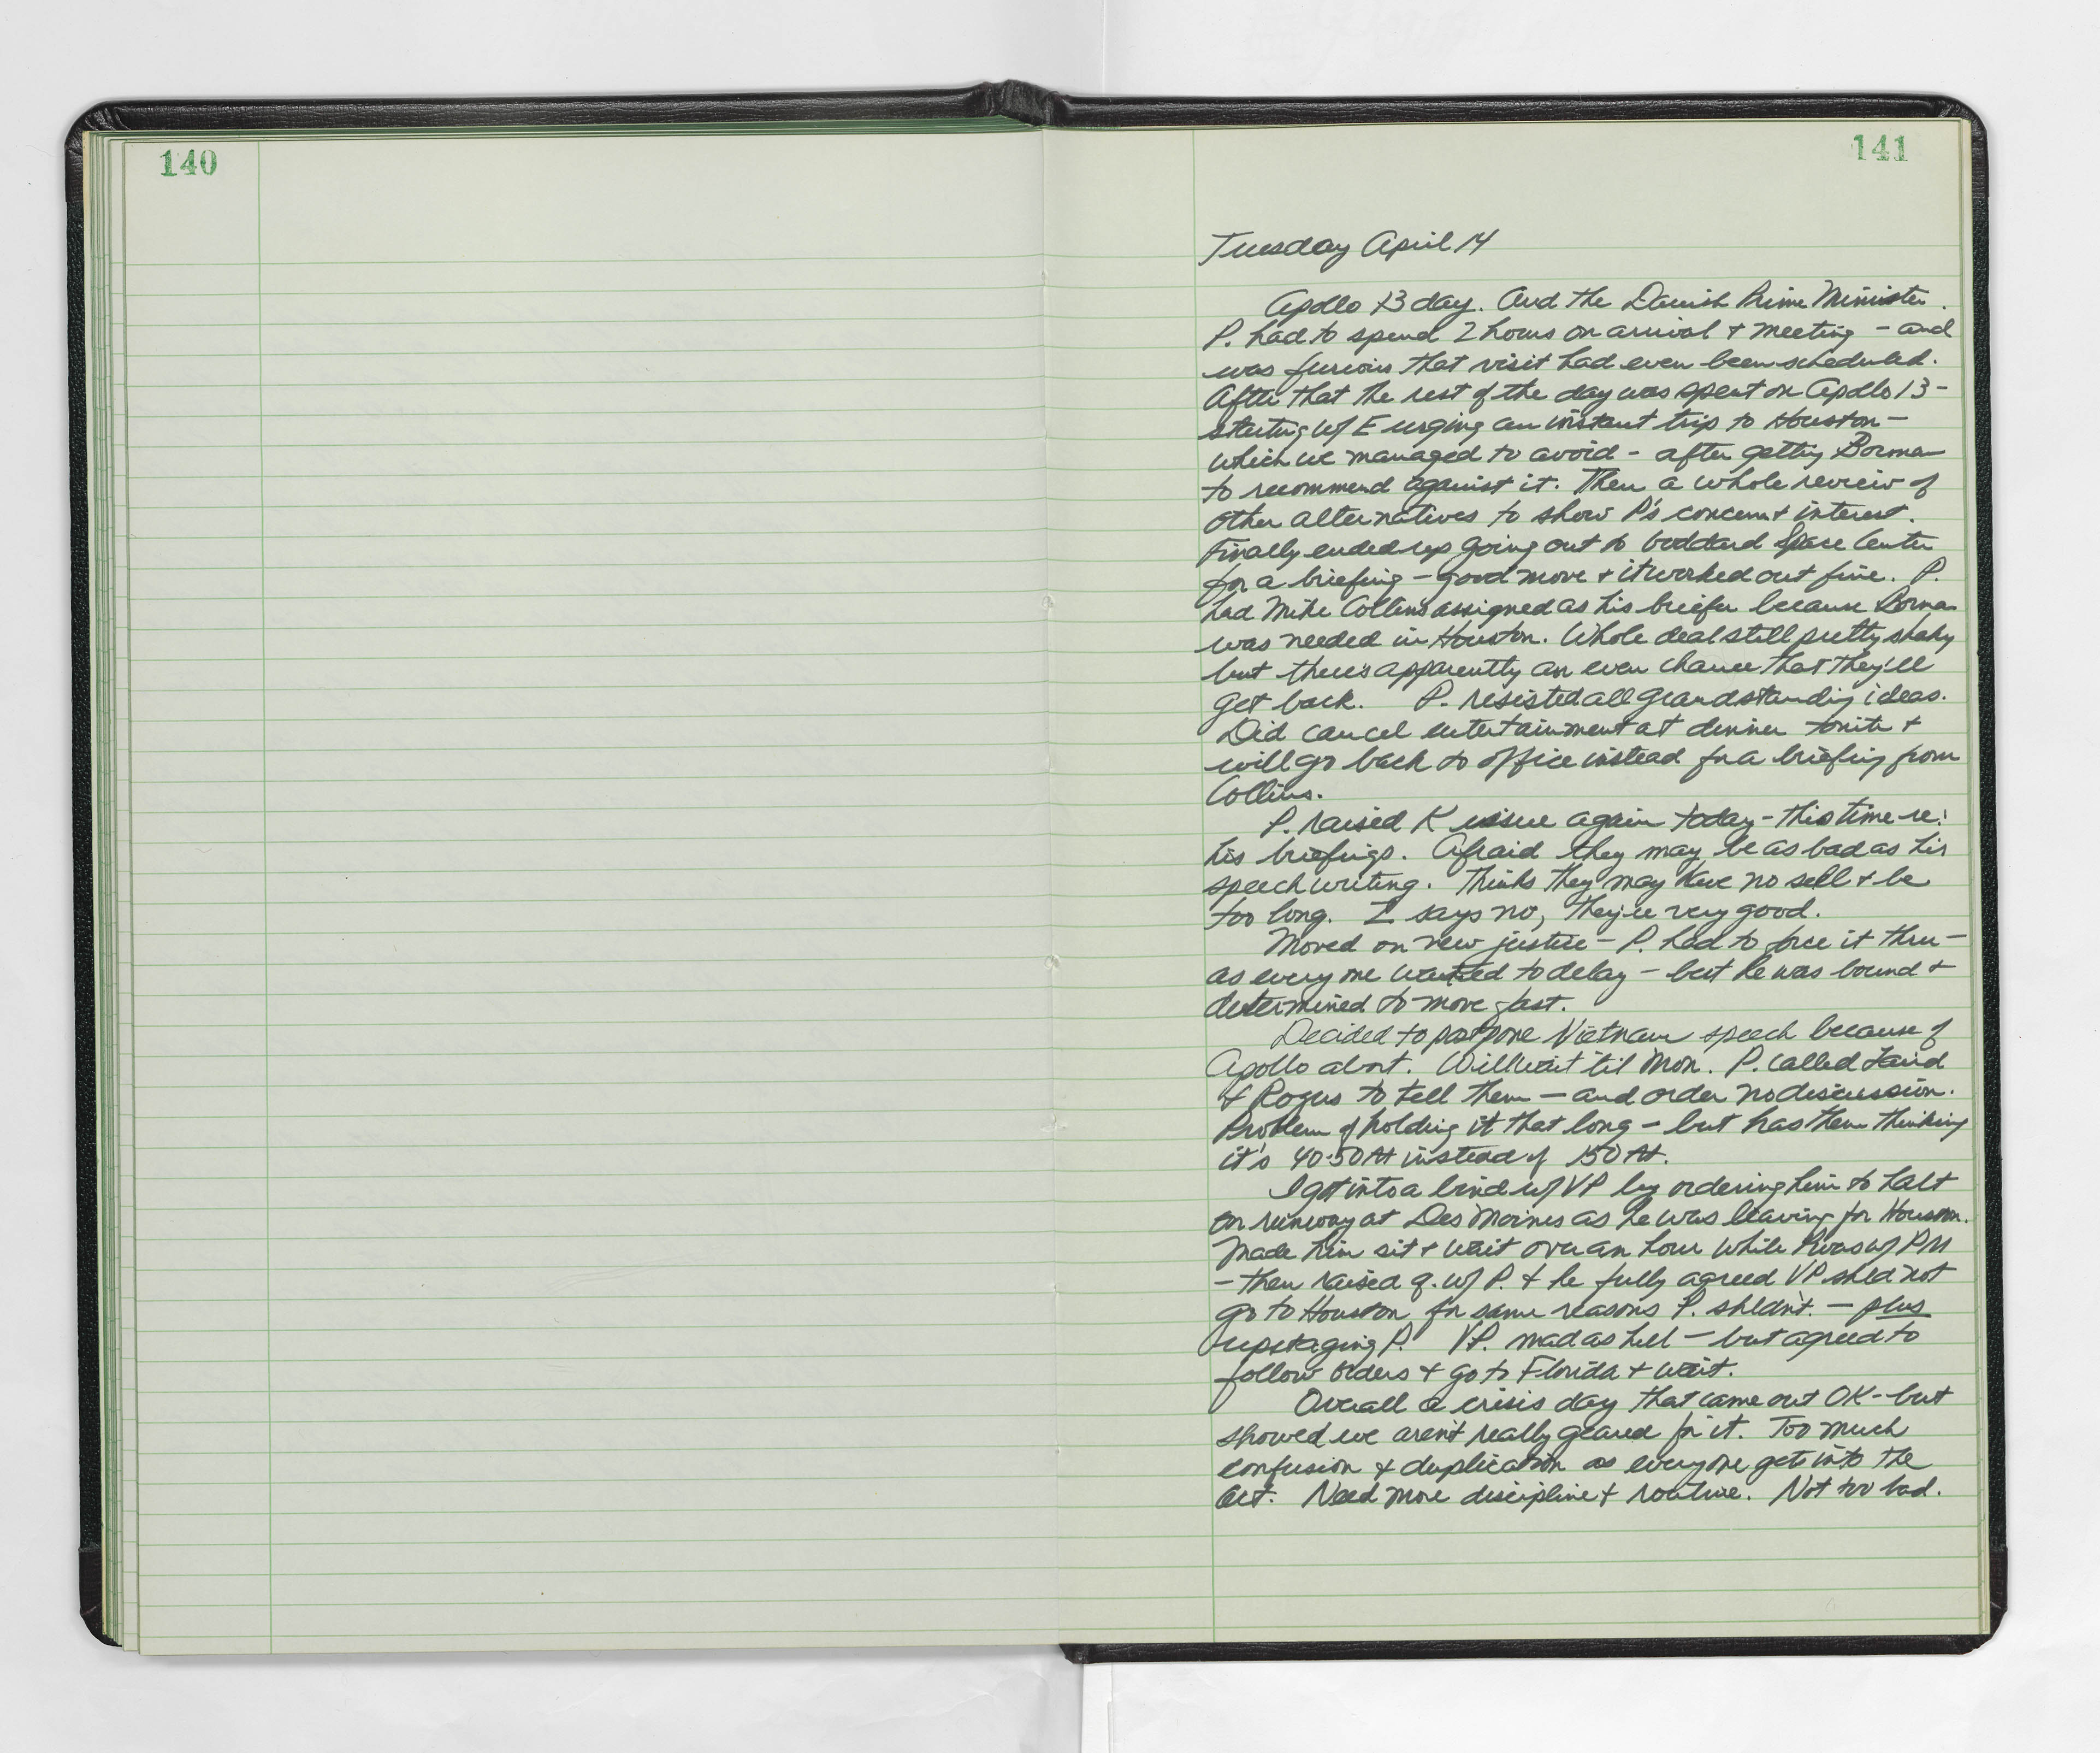 140
141
Tuesday April 14
Apollo 13 day. And the Danish Prime Minister.
P. had to spend 2 hours on arrival + meeting - and
was furious that visit had even been scheduled.
After that the rest of the day was spent on Apollo 13 -
starting w/ E urging an instant trip to Houston -
which we managed to avoid - after getting Borman
to recommend against it. Then a whole review of
other alternatives to show P's concern + interest.
Finally ended up going out to Goddard Space Center
for a briefing - good move + it worked out fine. P.
had Mike Collins assigned as his briefer because Borman
was needed in Houston. Whole deal still pretty shaky
but there's apparently an even chance that they'll
get back. P. resisted all grandstanding ideas.
Did cancel entertainment at dinner tonite +
will go back to office instead for a briefing from
Collins.
P. raised K issue again today - this time re:
his briefings. Afraid they may be as bad as his
speech writing. Thinks they may have no sell + be
too long. Z says no, they're very good.
Moved on new justice - P. had to force it thru -
as everyone wanted to delay - but he was bound +
determined to move fast.
Decided to postpone Vietnam speech because of
Apollo abort. Will wait til Mon. P. called Laird
+ Rogers to tell them - and order no discussion.
Problem of holding it that long - but has them thinking
it's 40-50 M instead of 150 M.
I got into a bind w/ VP by ordering him to halt
on runway at Des Moines as he was leaving for Houston.
Made him sit + wait over an hour while P was w/ PM
- then raised q. w/ P. + he fully agreed VP shld not
go to Houston for same reasons P. shldn't. - plus
upstaging P. VP. mad as hell - but agreed to
follow orders + go to Florida + wait.
Overall a crisis day that came out OK - but
showed we aren't really geared for it. Too much
confusion + duplication as everyone gets into the
act. Need more discipline + routine. Not too bad.